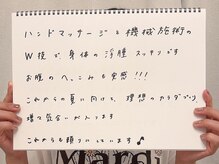 ハンドマッサージと機械施術の
W技で身体の浮腫スッキリです
お腹のへこみも実感!!!
これからの夏に向けて、理想のカラダづくり
俄々気合いが入ります
これからも頼りにしています♪